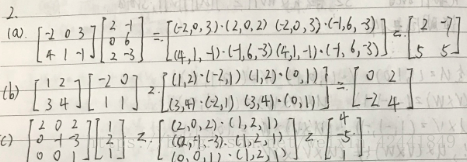 2.
(a) [-2 0 3; 4 1 -1] [2 -1; 0 6; 2 -3] = [(-2,0,3)·(2,0,2) (-2,0,3)·(-1,6,-3); (4,1,-1)·(-1,6,-3) (4,1,-1)·(-1,6,-3)] = [2 -7; 5 5]
(b) [1 2; 3 4] [-2 0; 1 1] = [(1,2)·(-2,1) (1,2)·(0,1); (3,4)·(-2,1) (3,4)·(0,1)] = [0 2; -2 4]
(c) [2 0 2; 0 -1 -3; 0 0 1] [1; 2; 1] = [(2,0,2)·(1,2,1); (0,-1,-3)·(1,2,1); (0,0,1)·(1,2,1)] = [4; -5;